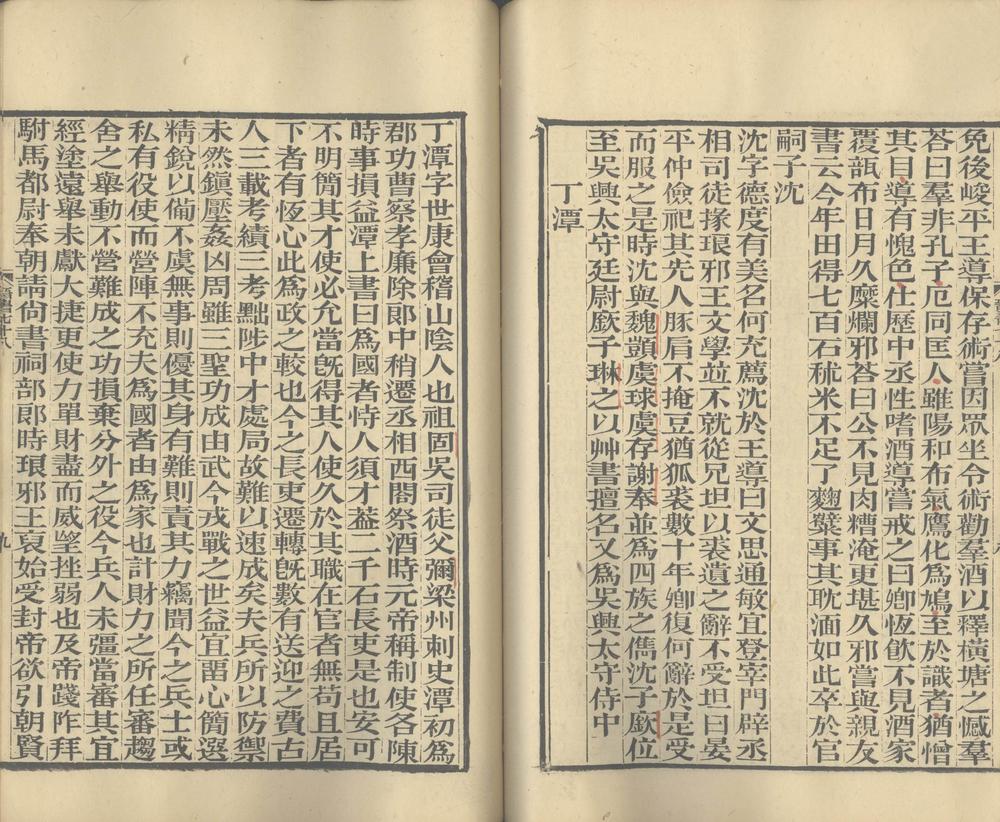 免後峻平王導保存術嘗因眾坐令術勸羣酒以釋橫塘之憾羣
荅曰羣非孔子厄同匡人雖陽和布氣鷹化爲鳩至於識者猶憎
其目導有愧色仕歷中丞性嗜酒導嘗戒之曰卿恆飮不見酒家
覆瓿布日月久糜爛邪荅曰公不見肉糟淹更堪久邪嘗與親友
書云今年田得七百石秫米不足了麴糱事其耽湎如此卒於官
嗣子沈
沈字德度有美名何充薦沈於王導曰文思通敏宜登宰門辟丞
相司徒掾琅邪王文學並不就從兄坦以裘遺之辭不受坦曰晏
平仲儉祀其先人豚肩不掩豆猶狐裘數十年卿復何辭於是受
而服之是時沈與魏顗虞球虞存謝奉並爲四族之儁沈子廞位
至吳興太守廷尉廞子琳之以艸書擅名又爲吳興太守侍中
丁潭
丁潭字世康會稽山陰人也祖固吳司徒父彌梁州刺史潭初爲
郡功曹察孝廉除郎中稍遷丞相西閤祭酒時元帝稱制使各陳
時事損益潭上書曰爲國者恃人須才葢二千石長吏是也安可
不明簡其才使必允當旣得其人使久於其職在官者無苟且居
下者有恆心此爲政之較也今之長吏遷轉旣數有送迎之費古
人三載考績三考黜陟中才處局故難以速成矣夫兵所以防禦
未然鎭壓姦凶周雖三聖功成由武今戎戰之世益宜畱心簡選
精銳以備不虞無事則優其身有難則責其力竊聞今之兵士或
私有役使而營陣不充夫爲國者由爲家也計財力之所任審趨
舍之舉動不營難成之功損棄分外之役今兵人未彊當審其宜
經塗遠舉未獻大捷更使力單財盡而威朢挫弱也及帝踐阼拜
駙馬都尉奉朝請尙書祠部郎時琅邪王裒始受封帝欲引朝賢
九